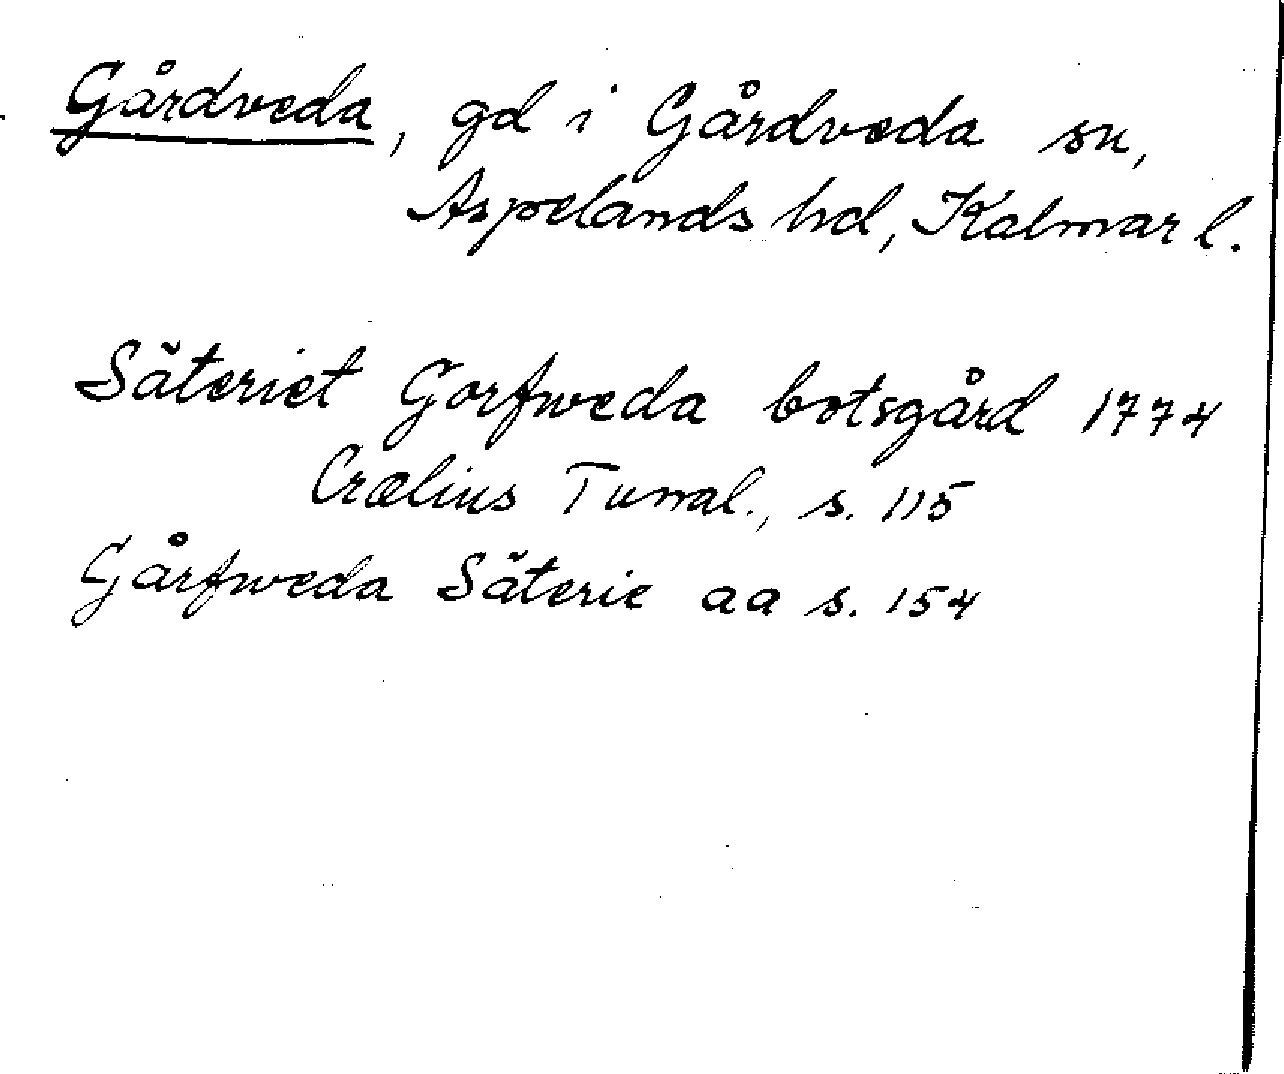 Gårdveda, gd i Gårdveda sn,
Aspelands hd, Kalmar l.
Säteriet Gorfweda botsgård 1774
Crælius Tunal., s. 115
Gårfweda Säterie aa s. 154